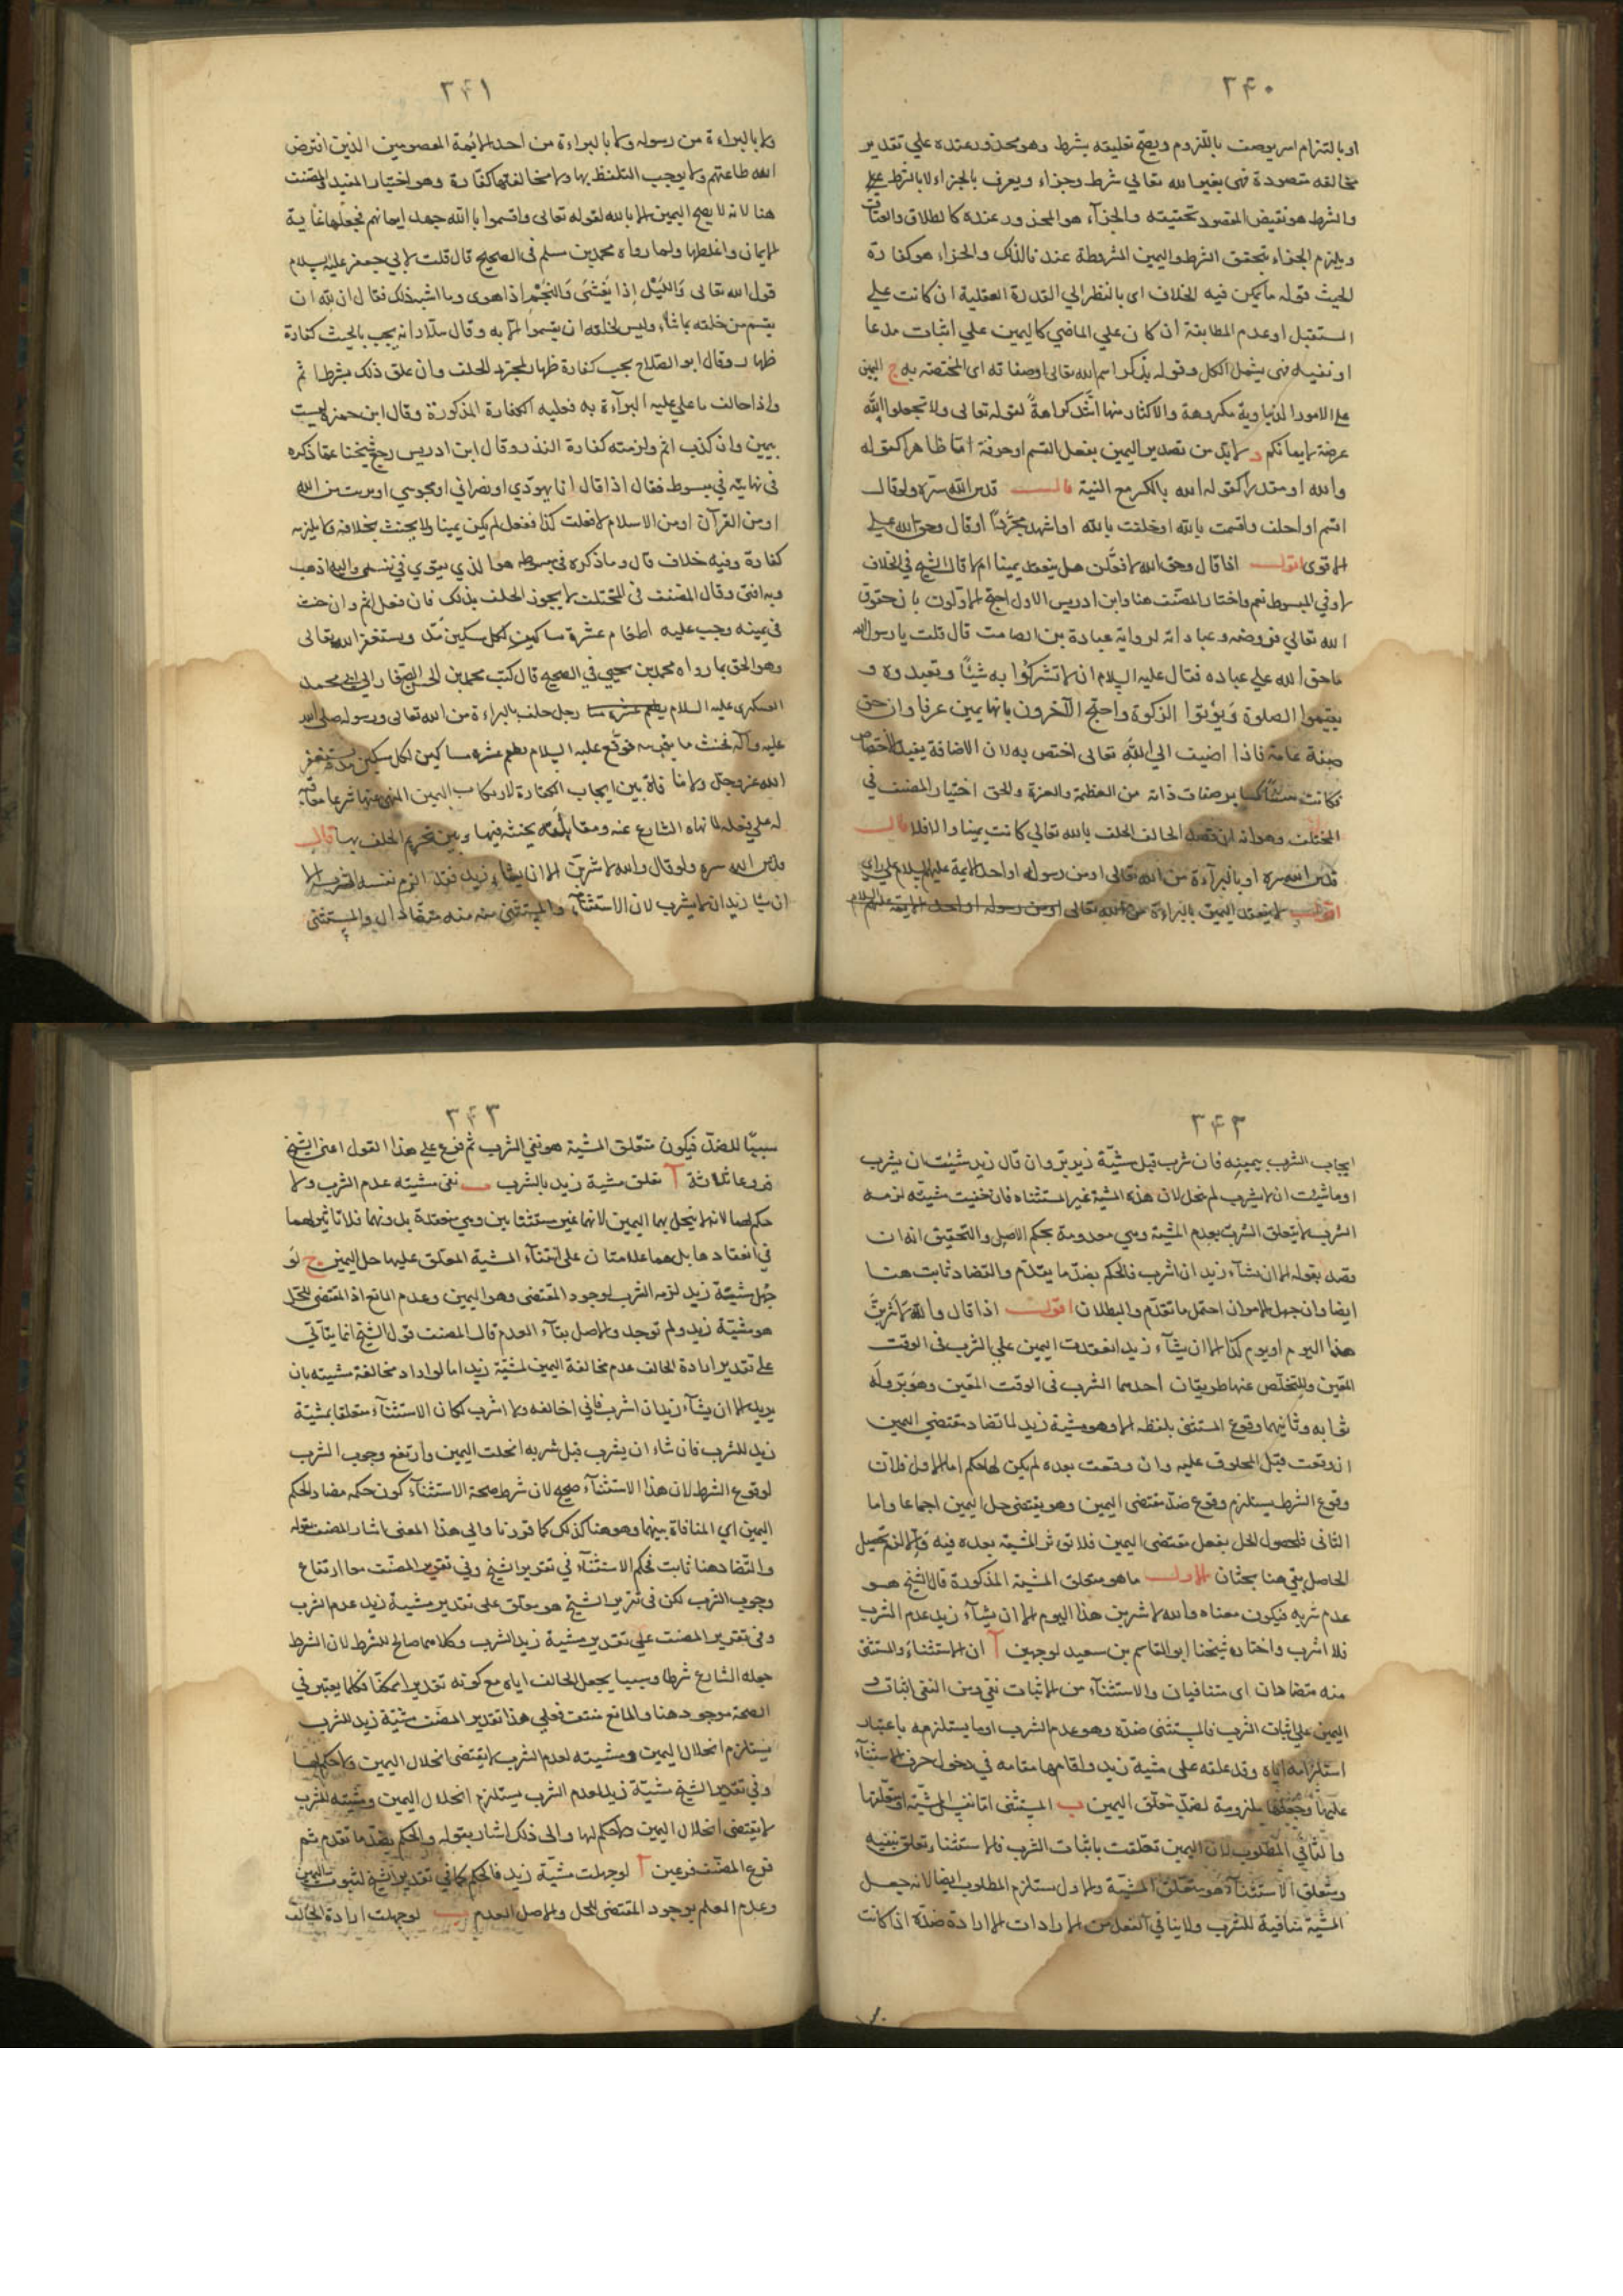 ۲۴۰
او بالتزام امر يوصف باللزوم ويصح تعليقه بشرط وهو محذور عنده علي تقدير
مخالفه مقصودة فهى بغير الله تعالي شرط وجزاء ويعرف بالجزاء لا بالشرط
والشرط هو نقيض المقصود تحقيقه والجزآء هو المحذور عنده كالطلاق والعتاق
ويلزم الجزاء بتحقق الشرط واليمين المشروطة عندنا لذلك والجزاء هو كفارة
الحنث قوله ما يمكن فيه الخلاف اى بالنظر الي القدرة العقلية ان كانت علي
المستقبل او عدم المطابقة ان كان علي الماضي كاليمين علي اثبات مدعا
او نفيه فهى يشمل الكل وقوله بذكر اسم الله تعالى او صفاته اى المختصة به ج اليمين
على الامور الدنياوية مكروهة والاكثار منها اشد كراهة لقوله تعالى ولا تجعلوا الله
عرضة لايمانكم د لابد من تصدير اليمين بفعل القسم او حرفه اما ظاهرا كقوله
والله او مقدرا كقوله الله بالكسر مع النية قال قدس الله سره ولو قال
اقسم او احلف واقسمت بالله او حلفت بالله او اشهد مجردا او قال وحق الله علي
الاقوى اقول اذا قال وحق الله لافعلن هل ينعقد يمينا ام لا قال الشيخ في الخلاف
لا وفي المبسوط نعم واختار المصنف هنا وابن ادريس الاول احتج الاولون بان حقوق
الله تعالي فروضه وعباداته لرواية عبادة بن الصامت قال قلت يا رسول الله
ما حق الله علي عباده فقال عليه السلام ان لا تشركوا به شيئا وتعبدوه و
يقيموا الصلوة ويؤتوا الزكوة واحتج الآخرون بانها يمين عرفا وان حق
صفة عامة فاذا اضيف الي الله تعالى اختص به لان الاضافة يفيد الاختصاص
فكانت كساير صفات ذاته من العظمة والعزة والحق اختيار المصنف في
المختلف وهو انه ان قصد الحالف الحلف بالله تعالي كانت يمينا والا فلا قال
قدس الله سره او بالبرآءة من الله تعالى او من رسوله او احد الايمة عليهم السلام علي راى
اقول لا ينعقد اليمين بالبراءة من الله تعالى او من رسوله او احد الايمة عليهم السلام
۲۴۱
ولا بالبراءة من رسوله ولا بالبراءة من احد الائمة المعصومين الذين افترض
الله طاعتهم ولا يوجب التلفظ بها ولا مخالفتها كفارة وهو اختيار المفيد والمصنف
هنا لانه لا يصح اليمين الا بالله لقوله تعالى واقسموا بالله جهد ايمانهم فجعلها غاية
الايمان واغلظها ولما رواه محمد بن مسلم فى الصحيح قال قلت لابي جعفر عليه السلام
قول الله تعالى والليل اذا يغشى والنجم اذا هوى وما اشبه ذلك فقال ان لله ان
يقسم من خلقه بما شاء وليس لخلقه ان يقسموا الا به وقال سلار انه يجب بالحنث كفارة
ظهار وقال ابو الصلاح يجب كفارة ظهار لمجرد الحلف وان علق ذلك بشرط ثم
واذا خالف ما علي عليه البرآءة به فعليه الكفارة المذكورة وقال ابن حمزة ليست
بيمين وان كذب اثم ولزمته كفارة النذر وقال ابن ادريس رجع شيخنا عما ذكره
فى نهايته في مبسوطه فقال اذا قال انا يهودي او نصراني او مجوسي او بريت من الله
او من القرآن او من الاسلام لا فعلت كذا ففعل لم يكن يمينا ولا يحنث بخلافه ولا يلزمه
كفارة وفيه خلاف قال وما ذكره فى مبسوطه هو الذي يقوي في نفسى واليه اذهب
وبه افتى وقال المصنف فى المختلف لا يجوز الحلف بذلك فان فعل اثم وان حنث
في يمينه وجب عليه اطعام عشرة مساكين لكل مسكين مد ويستغفر الله تعالى
وهو الحق بما رواه محمد بن يحيى في الصحيح قال كتب محمد بن الحسن الصفار الى ابى محمد
العسكرى عليه السلام رجل حلف بالبراءة من الله تعالى ورسوله صلى الله
عليه وآله فحنث ما توبته فوقع عليه السلام يطعم عشرة مساكين لكل مسكين مد ويستغفر
الله عز وجل ولا منافاة بين ايجاب الكفارة لارتكاب اليمين المنهى عنها شرعا معاقبة
له على فعله لما نهاه الشارع عنه ومقابلته بحنثه فيها وبين تحريم الحلف بها قال
قدس الله سره ولو قال والله لاشربن الا ان يشاء زيد فقد الزم نفسه الشرب الا
ان يشا زيد ان لا يشرب لان الاستثناء والمستثنى منه متضادان والمستثنى
۲۴۳
ايجاب الشرب بيمينه فان شرب قبل مشية زيد بر وان قال زيد شيئت ان يشرب
او ما شيت ان لا يشرب لم نحل لان هذه المشية غير المستثناه فان خفيت مشيته لزمه
الشرب لا يتعلق الشرب بعدم المشية وهي معدومة بحكم الاصل والتحقيق انه ان
قصد بقوله الا ان يشآء زيد ان اشرب فالحكم بضد ما يتقدم والتضاد ثابت هنا
ايضا وان جهل الامران احتمل ما تقدم والبطلان اقول اذا قال والله لاشربن
هذا اليوم او يوم كذا الا ان يشآء زيد انعقدت اليمين على الشرب فى الوقت
المعين وللتخلص عنها طريقان احدهما الشرب فى الوقت المعين وهو بر وله
ثوابه وثانيهما وقوع المستثنى بلفظه الا وهو مشية زيد لما تضاد مقتضي اليمين
ان وقعت قبل المحلوف عليه وان وقعت بعده لم يكن لها حكم اما الاول فلان
وقوع الشرط يستلزم وقوع ضد مقتضى اليمين وهو يقتضى حل اليمين اجماعا واما
الثانى فلحصول الحل بفعل مقتضى اليمين فلا تؤثر المشية بعده فيه والا لزم تحصيل
الحاصل بقي هنا بحثان الاول ما هو متعلق المشية المذكورة قال الشيخ هو
عدم شربه فيكون معناه والله لاشربن هذا اليوم الا ان يشآء زيد عدم الشرب
فلا اشرب واختاره شيخنا ابو القاسم بن سعيد لوجهين آ ان الاستثناء والمستثنى
منه متضادان اى متنافيان والاستثنآء من الاثبات نفي ومن النفى اثبات و
اليمين على اثبات الشرب فالمستثنى ضده وهو عدم الشرب او ما يستلزمه باعتبار
استلزامه اياه وقد علقه على مشية زيد واقامها مقامه في دخول حرف الاستثنآء
عليها وجعلها ملزومة لضد متعلق اليمين ب المستثنى اما نفس المشية او متعلقها
والثاني المطلوب لان اليمين تعلقت باثبات الشرب فالاستثناء تعلق بنفيه
ومتعلق الاستثنآء هو متعلق المشية والاول يستلزم المطلوب ايضا لانه جعل
المشية منافية للشرب ولا ينافي الفعل من الارادات الا ارادة ضده اذا كانت
۲۴۳
سببا للضد فيكون متعلق المشية هو نفي الشرب ثم فرع علي هذا القول اعنى الشيخ
فروعا ثلاثة آ تعلق مشية زيد بالشرب ب نفى مشيته عدم الشرب ولا
حكم لهما لانه لا ينحل بهما اليمين لانهما غير مستثنايين
في انعقادها بل هما علامتان على انتفآء المشية المعلق عليها حل اليمين ج لو
جهل مشية زيد لزمه الشرب لوجود المقتضى وهو اليمين وعدم المانع اذ المقتضى للحل
هو مشية زيد ولم توجد والاصل بقآء العدم قال المصنف قول الشيخ انما يتأتى
على تقدير ارادة الحالف عدم مخالفة اليمين لمشية زيد اما لو اراد مخالفة مشيته بان
يريد الا ان يشآء زيد ان اشرب فاني اخالفه ولا اشرب لكان الاستثنآء متعلقا بمشية
زيد للشرب فان شاء ان يشرب قبل شربه انحلت اليمين وارتفع وجوب الشرب
لوقوع الشرط لان هذا الاستثنآء صحيح لان شرط صحة الاستثنآء كون حكمه مضاد الحكم
اليمين اي المنافاة بينهما وهو هنا كذلك كما قررنا والى هذا المعنى اشار المصنف بقوله
والتضاد هنا ثابت فحكم الاستثنآء في تقرير الشيخ وفي تقرير المصنف معا ارتفاع
وجوب الشرب لكن فى تقرير الشيخ هو معلق على تقدير مشية زيد عدم الشرب
وفى تقرير المصنف علي تقدير مشية زيد الشرب وكلاهما صالح للشرط لان الشرط
جعله الشارع شرطا وسببا بجعل الحالف اياه مع كونه تقديرا ممكنا فكلما يعتبر في
الصحة موجود هنا والمانع منتف فعلي هذا تقدير المصنف مشية زيد للشرب
يستلزم انحلال اليمين ومشيته لعدم الشرب لا يقتضى انحلال اليمين ولا حكم لها
وفي تقدير الشيخ مشية زيد لعدم الشرب يستلزم انحلال اليمين ومشيته للشرب
لا يقتضى انحلال اليمين ولا حكم لها والى ذلك اشار بقوله والحكم بضد ما تقدم ثم
فرع المصنف فرعين آ لو جهلت مشية زيد فالحكم كما في تقدير الشيخ لثبوت اليمين
وعدم العلم بوجود المقتضى للحل والاصل العدم ب لو جهلت ارادة الحالف